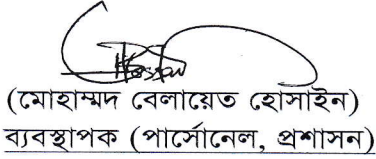 (মোহাম্মদ বেলায়েত হোসাইন)
ব্যবস্থাপক (পার্সোনেল, প্রশাসন)